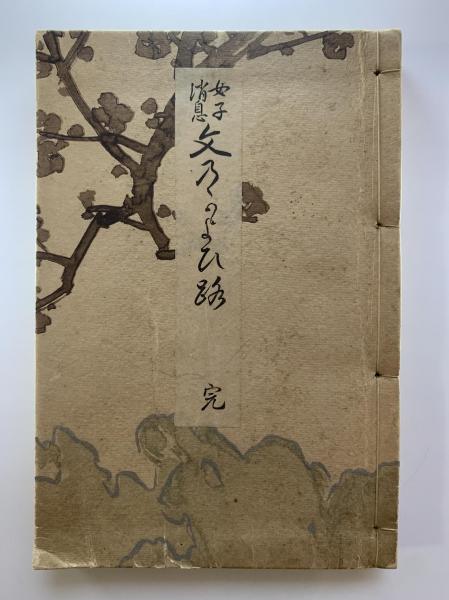 女子
消息
文乃かよひ路
完